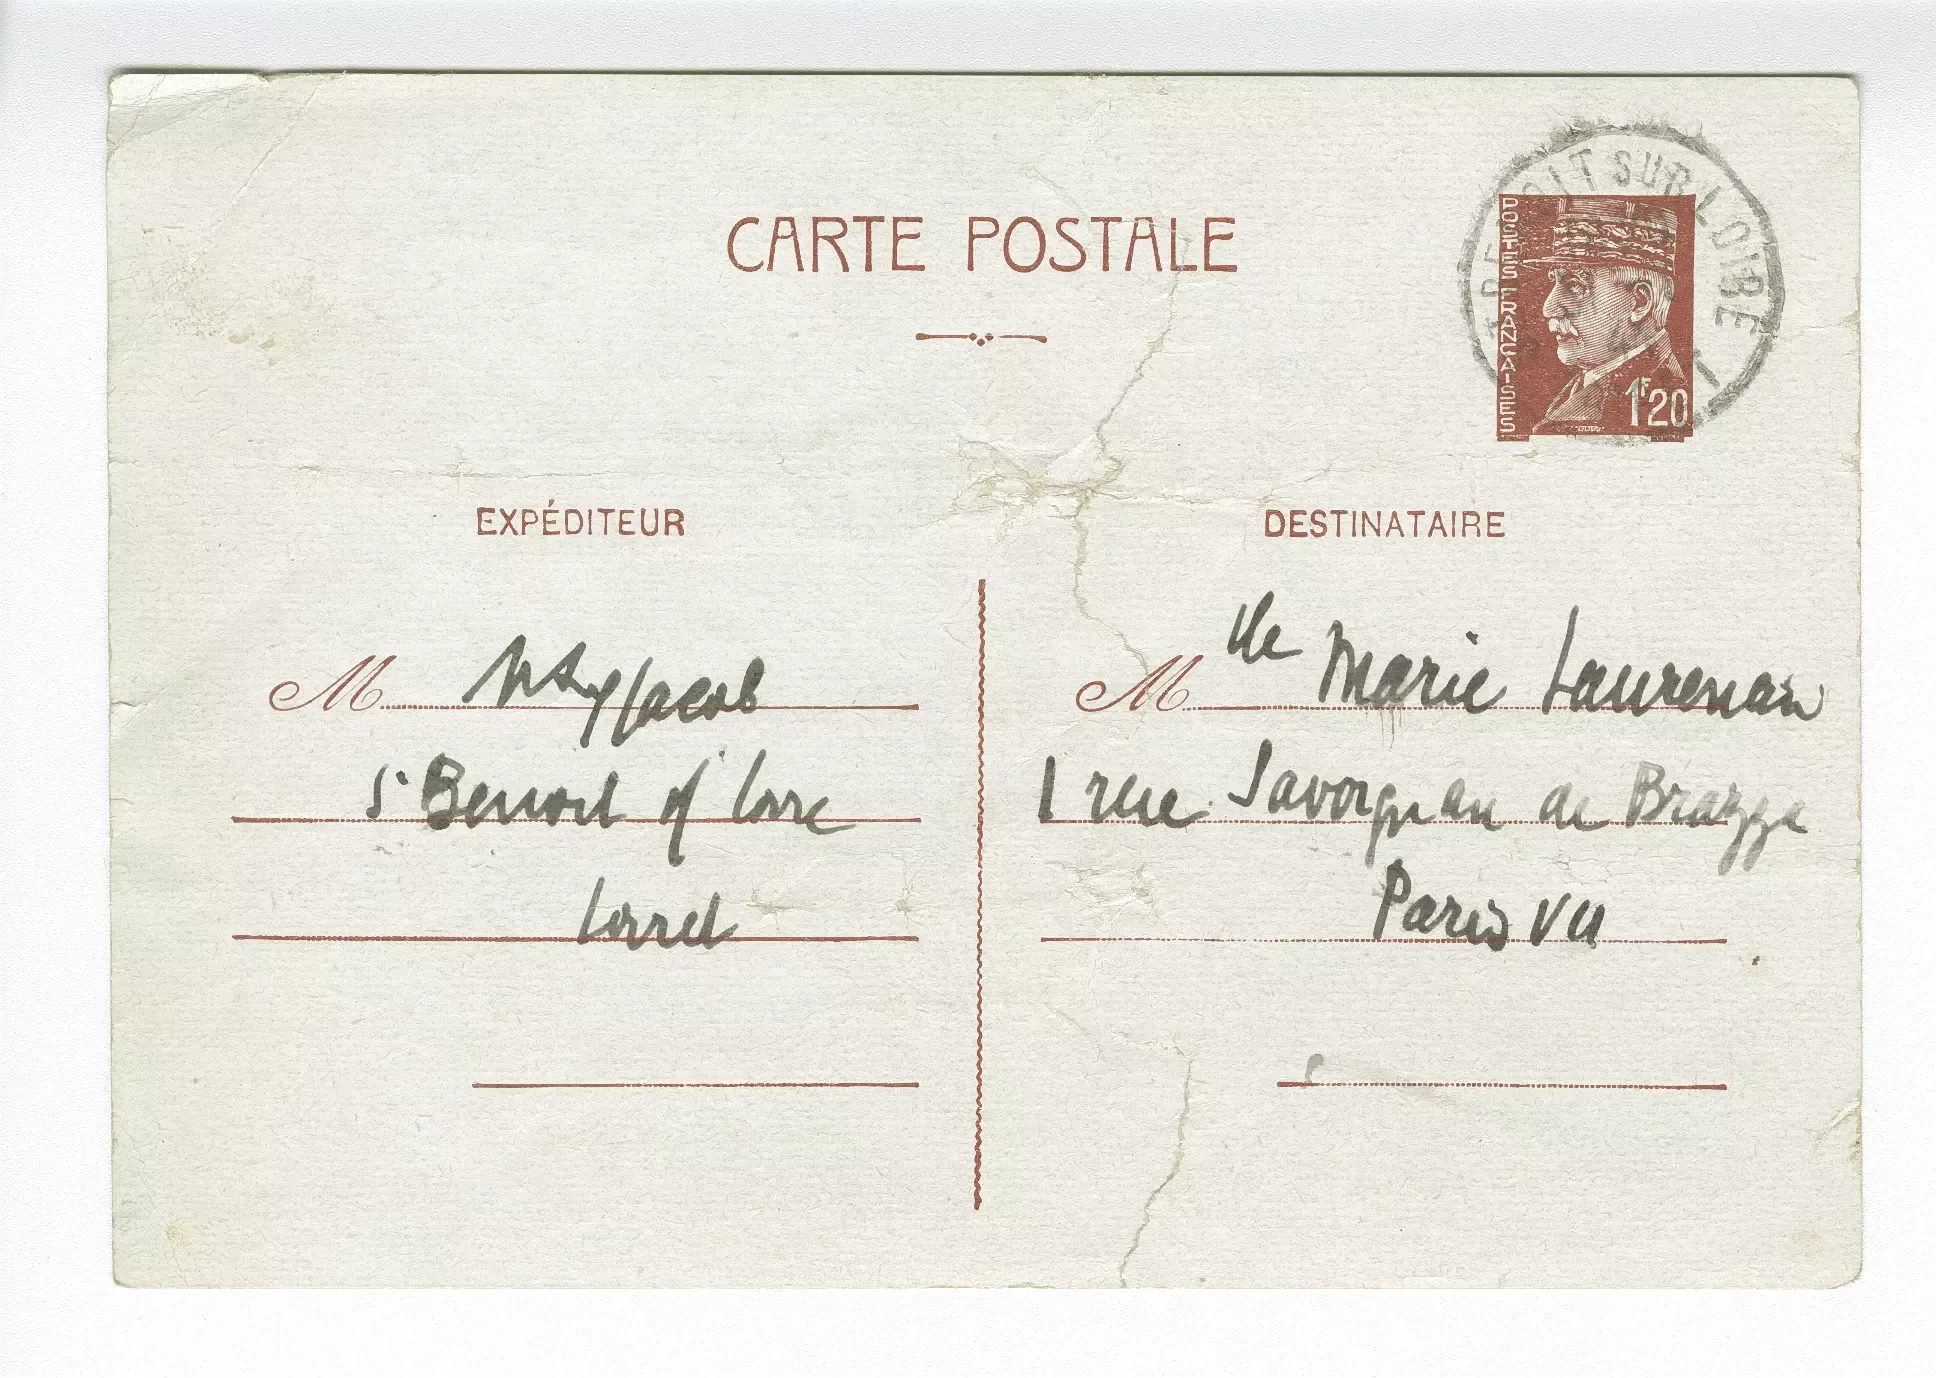 CARTE POSTALE
BENOIT SUR LOIRE
POSTES FRANÇAISES
1F20
EXPÉDITEUR
M Max Jacob
St Benoit s/ Loire
Loiret
DESTINATAIRE
M lle Marie Laurencin
1 rue Savorgnan de Brazza
Paris VII